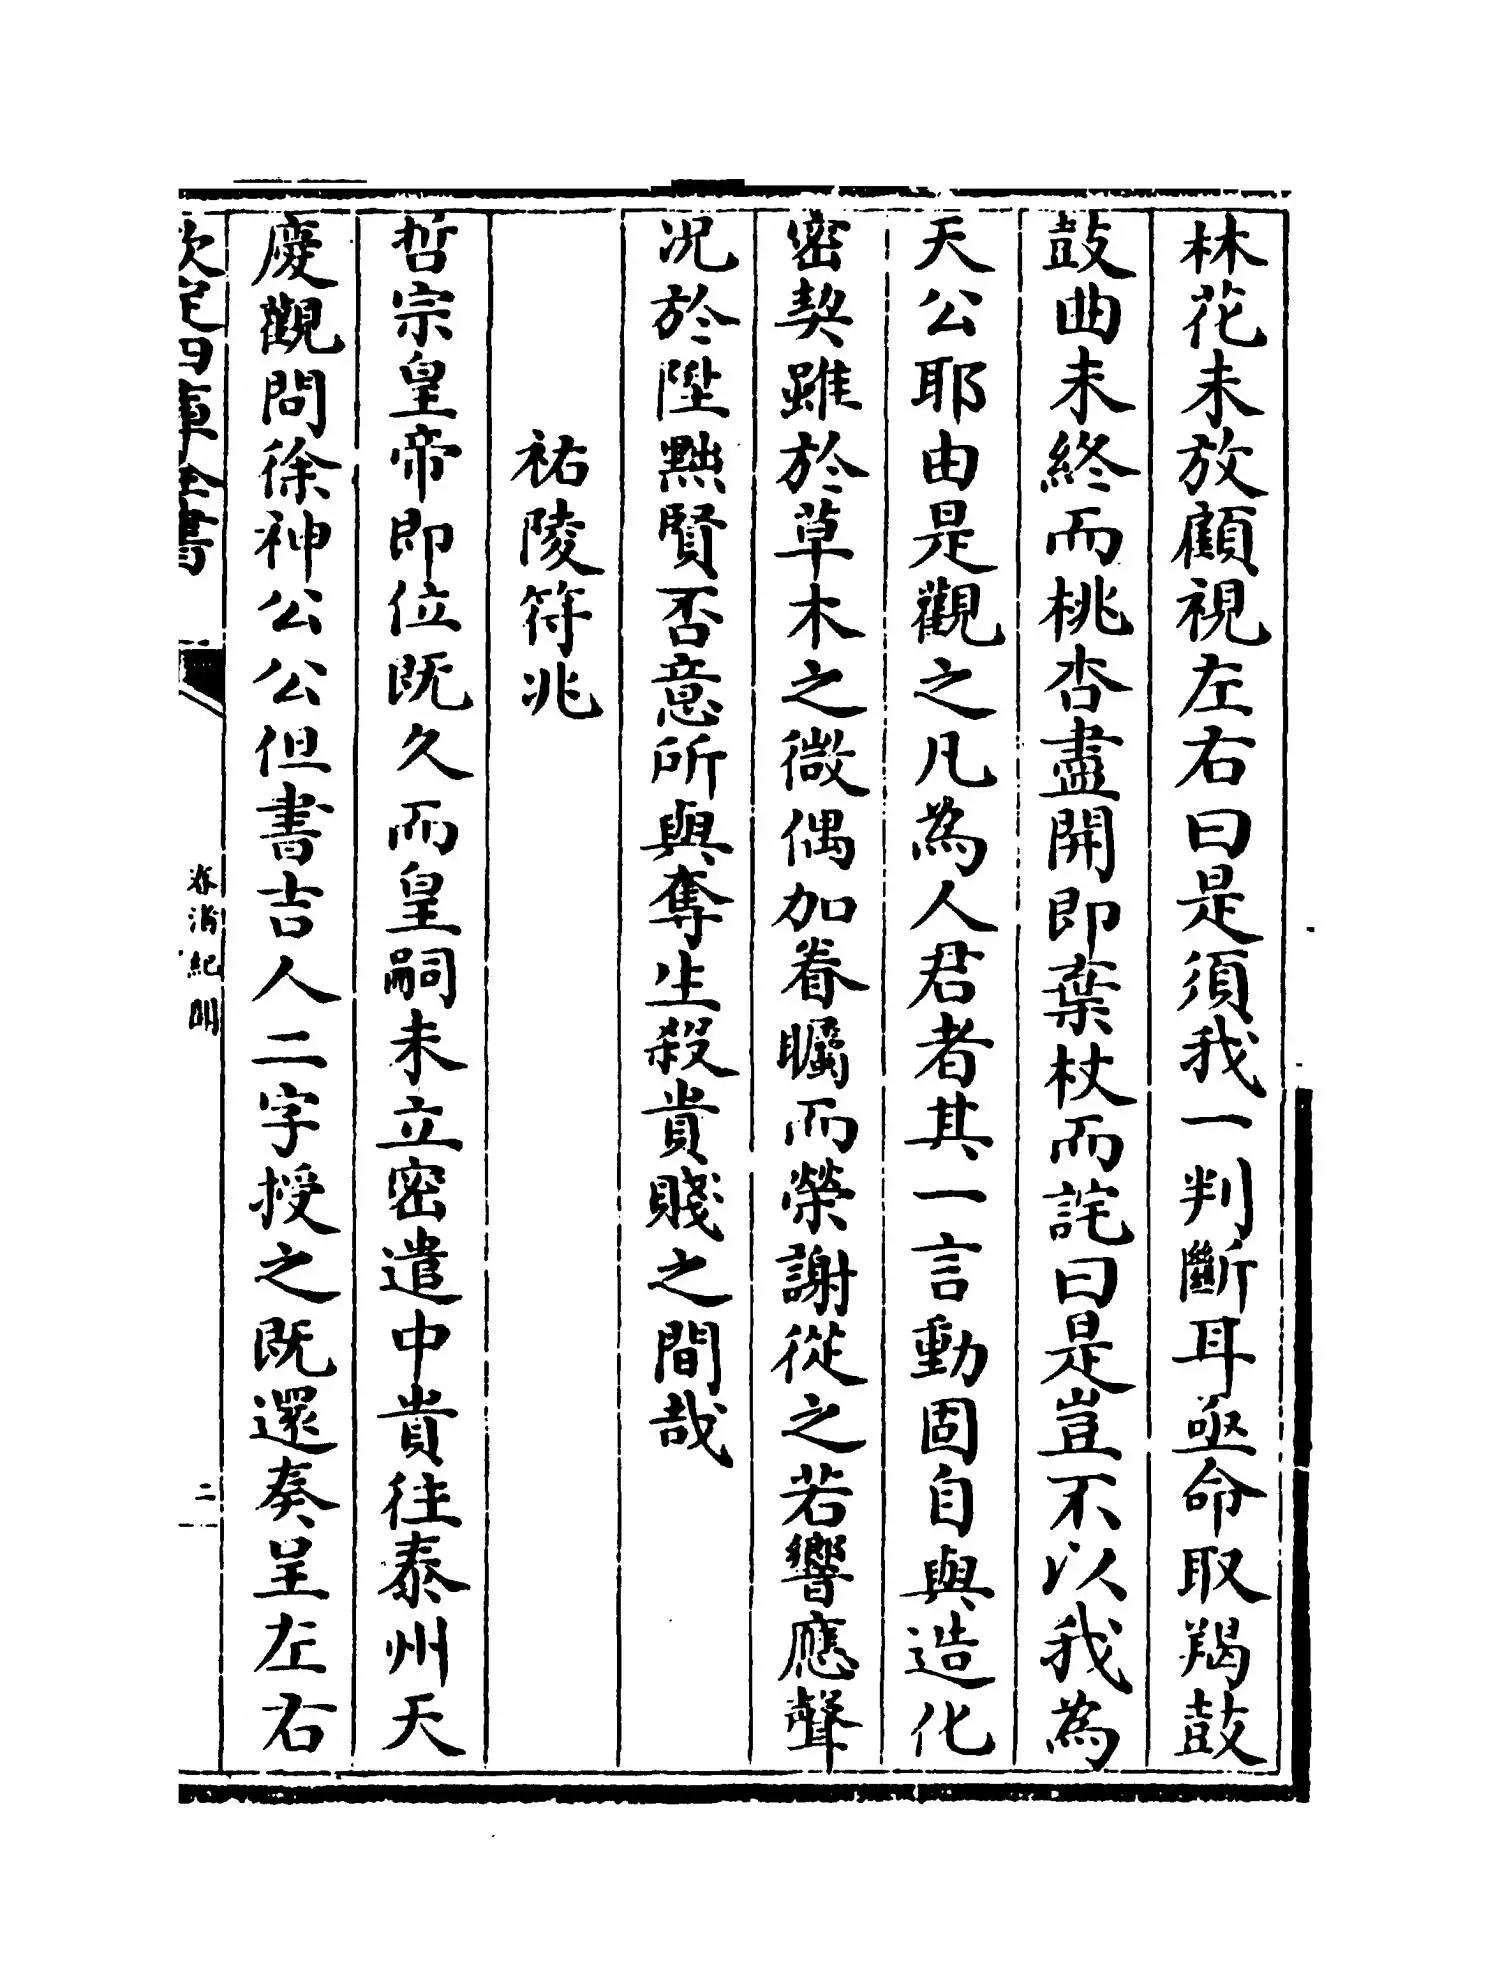 林花未放顧視左右曰是須我一判斷耳亟命取羯鼓
鼓曲未終而桃杏盡開即棄杖而詫曰是豈不以我為
天公耶由是觀之凡為人君者其一言動固自與造化
密契雖於草木之微偶加眷矚而榮謝從之若響應聲
况於陞黜賢否意所與奪生殺貴賤之間哉
祐陵符兆
哲宗皇帝即位既久而皇嗣未立密遣中貴往泰州天
慶觀問徐神公公但書吉人二字授之既還奏呈左右
欽定四庫全書
春渚紀聞
二